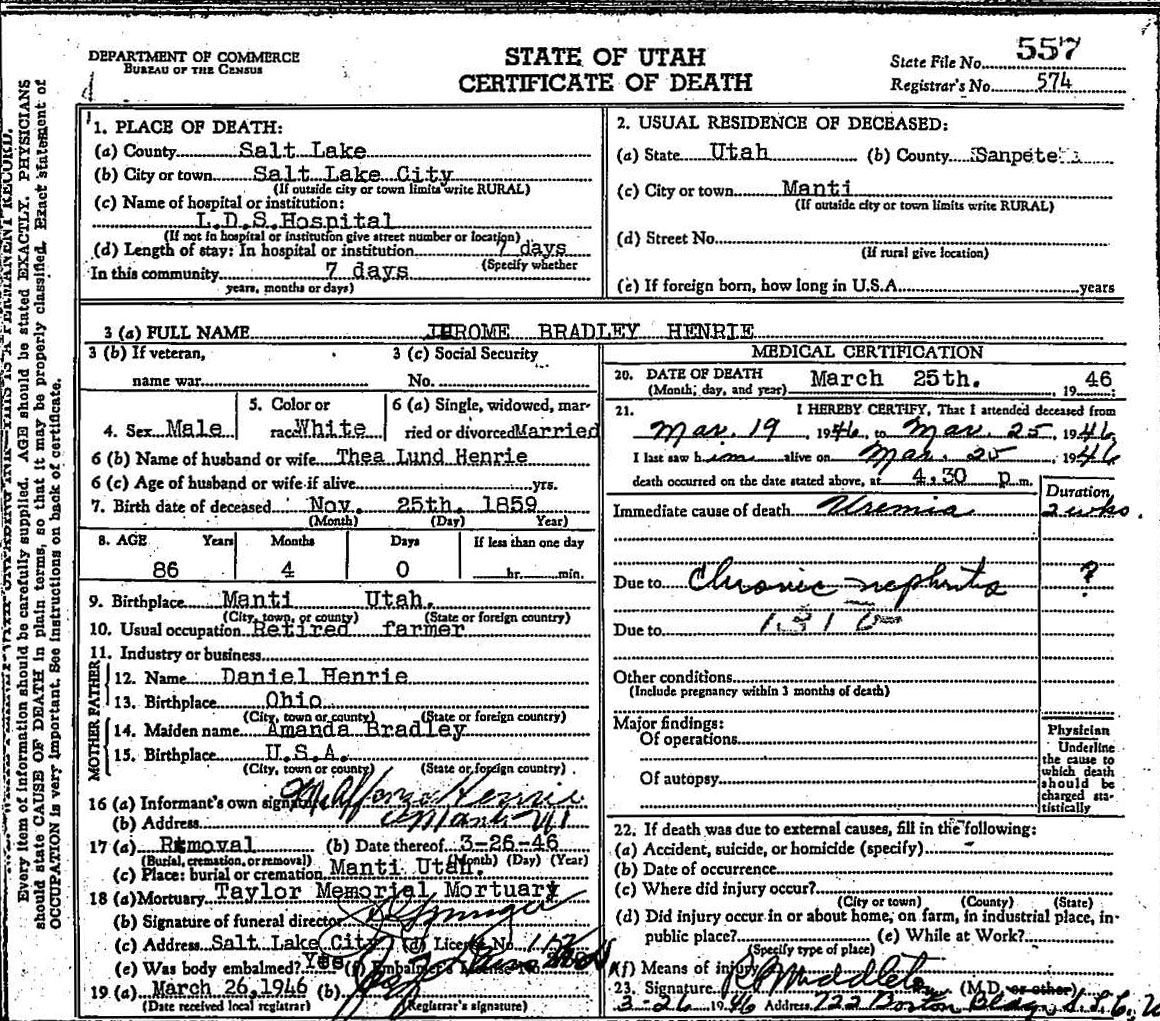 DEPARTMENT OF COMMERCE
BUREAU OF THE CENSUS
STATE OF UTAH
CERTIFICATE OF DEATH
State File No. 557
Registrar's No. 574
1. PLACE OF DEATH:
(a) County Salt Lake
(b) City or town Salt Lake City
(If outside city or town limits write RURAL)
(c) Name of hospital or institution:
L.D.S.Hospital
(If not in hospital or institution give street number or location)
(d) Length of stay: In hospital or institution 7 days
(Specify whether
In this community 7 days
years, months or days)
2. USUAL RESIDENCE OF DECEASED:
(a) State Utah (b) County Sanpete
(c) City or town Manti
(If outside city or town limits write RURAL)
(d) Street No.
(If rural give location)
(e) If foreign born, how long in U.S.A. years
3 (a) FULL NAME JEROME BRADLEY HENRIE
3 (b) If veteran,
name war
3 (c) Social Security
No.
4. Sex Male
5. Color or
race White
6 (a) Single, widowed, mar-
ried or divorced Married
6 (b) Name of husband or wife Thea Lund Henrie
6 (c) Age of husband or wife if alive yrs.
7. Birth date of deceased Nov. 25th. 1859
(Month) (Day) Year)
8. AGE Years Months Days If less than one day
86 4 0 hr. min.
9. Birthplace Manti Utah.
(City, town, or county) (State or foreign country)
10. Usual occupation Retired farmer
11. Industry or business
FATHER
12. Name Daniel Henrie
13. Birthplace Ohio
(City, town or county) (State or foreign country)
MOTHER
14. Maiden name Amanda Bradley
15. Birthplace U.S.A.
(City, town or county) (State or foreign country)
16 (a) Informant's own signature Henrie
(b) Address Manti Ut
17 (a) Removal (b) Date thereof 3-26-46
(Burial, cremation, or removal) (Month) (Day) (Year)
(c) Place: burial or cremation Manti Utah.
18 (a) Mortuary Taylor Memorial Mortuary
(b) Signature of funeral director
(c) Address Salt Lake City (d) License No.
(e) Was body embalmed? Yes (f) Embalmer's License No.
19 (a) March 26,1946 (b)
(Date received local registrar) (Registrar's signature)
MEDICAL CERTIFICATION
20. DATE OF DEATH
(Month, day, and year) March 25th. 19 46
21. I HEREBY CERTIFY, That I attended deceased from
Mar. 19, 1946, to Mar. 25, 1946
I last saw him alive on Mar. 25, 1946
death occurred on the date stated above, at 4.30 p.m.
Duration
Immediate cause of death Uremia 2 wks.
Due to Chronic nephritis ?
Due to
Other conditions
(Include pregnancy within 3 months of death)
Major findings:
Of operations
Of autopsy
Physician
Underline
the cause to
which death
should be
charged sta-
tistically
22. If death was due to external causes, fill in the following:
(a) Accident, suicide, or homicide (specify) -
(b) Date of occurrence
(c) Where did injury occur?
(City or town) (County) (State)
(d) Did injury occur in or about home, on farm, in industrial place, in-
public place? (e) While at Work?
(Specify type of place)
(f) Means of injury
23. Signature Middleton (M.D. or other)
3-26 1946 Address 722 Boston Bldg S.L.C. U
Every item of information should be carefully supplied. AGE should be stated EXACTLY. PHYSICIANS
should state CAUSE OF DEATH in plain terms, so that it may be properly classified. Exact statement of
OCCUPATION is very important. See instructions on back of certificate.